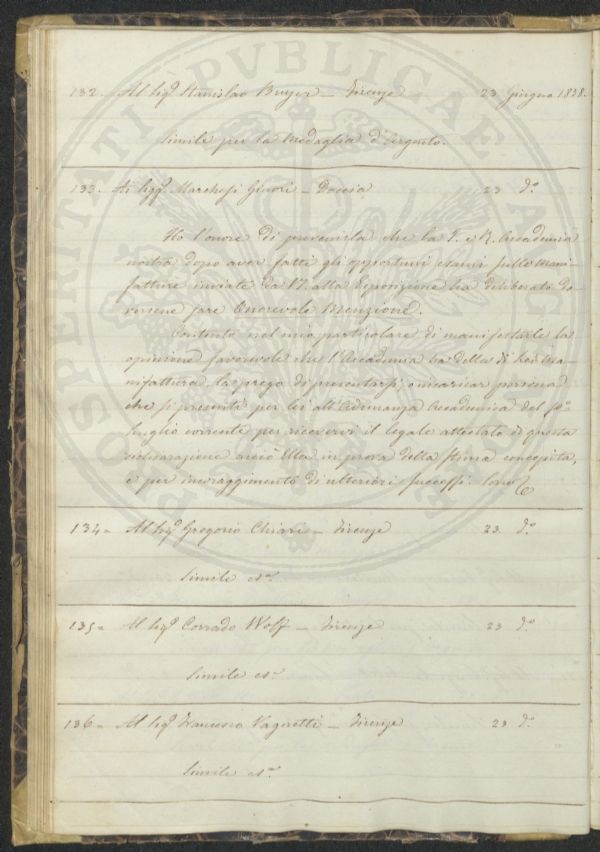 132. Al Sigr Stanislao Bruyer – Firenze 23 Giugno 1838.
Simile per la Medaglia d'Argento.
133. Ai Sigg. Marchesi Ginori – Doccia 23 do
Ho l'onore di prevenirla che la I. e R. Accademia
nostra dopo aver fatti gli opportuni esami sulle Mani
fatture inviate da V.S. alla Esposizione ha deliberato do
versene fare Onorevole Menzione.
Contento nel mio particolare di manifestarle la
opinione favorevole che l'Accademia ha della di Lei Ma
nifattura, la prego di presentarsi, o incaricar persona
che si presenti per lei all'Adunanza Accademica del po
Luglio corrente per ricevervi il legale attestato di questa
dichiarazione acciò Ella in prova della stima concepita,
e per incoraggimento di ulteriori successi.
134 – Al Sigr Gregorio Chiari – Firenze 23. do
Simile ec.
135 – Al Sigr Corrado Wolf – Firenze 23 do
Simile ec.
136 – Al Sigr Francesco Vagnetti – Firenze 23 do
Simile ec.
PROSPERITATI PUBLICAE